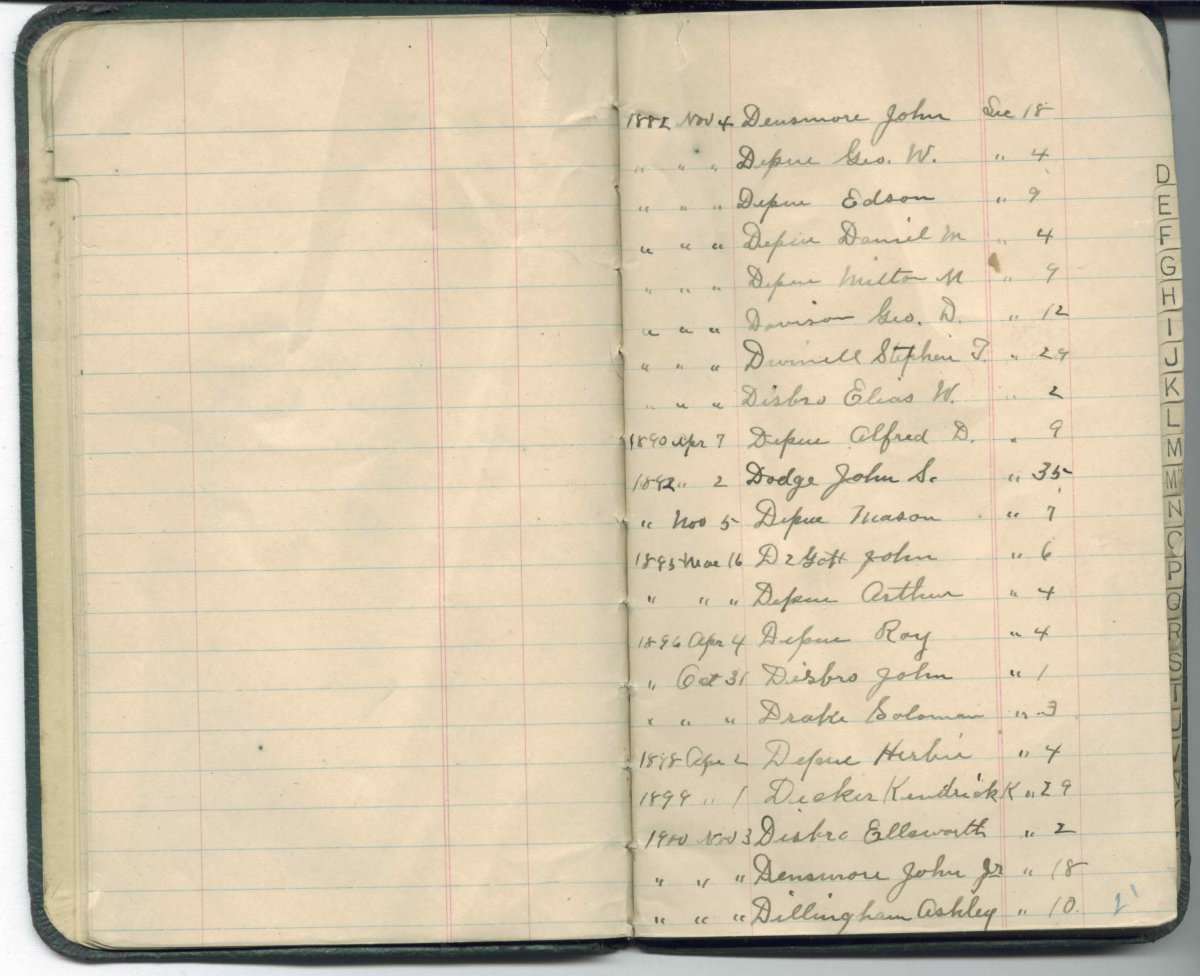 1882 Nov 4 Densmore John Sec 18
" " " Depue Geo. W. " 4
" " " Depue Edson " 9
" " " Depue Daniel M " 4
" " " Depue Milton M " 9
" " " Davison Geo. D. " 12
" " " Dwinell Stephen T. " 29
" " " Disbro Elias W. " 2
1890 Apr 7 Depue Alfred D. " 9
1892 " 2 Dodge John S. " 35
" Nov 5 Depue Mason " 7
1895 Mar 16 John " 6
" " " Depue Arthur " 4
1896 Apr 4 Depue Roy " 4
" Oct 31 Disbro John " 1
" " " Drake Soloman " 3
1898 Apr 2 Depue Herbie " 4
1899 " 1 Decker Kendrick K " 29
1900 Nov 3 Disbro Ellsworth " 2
" " " Densmore John Jr " 18
" " " Dillingham Ashley " 10.
D
E
F
G
H
I
J
K
L
M
N
O
P
Q
R
S
T
U
V